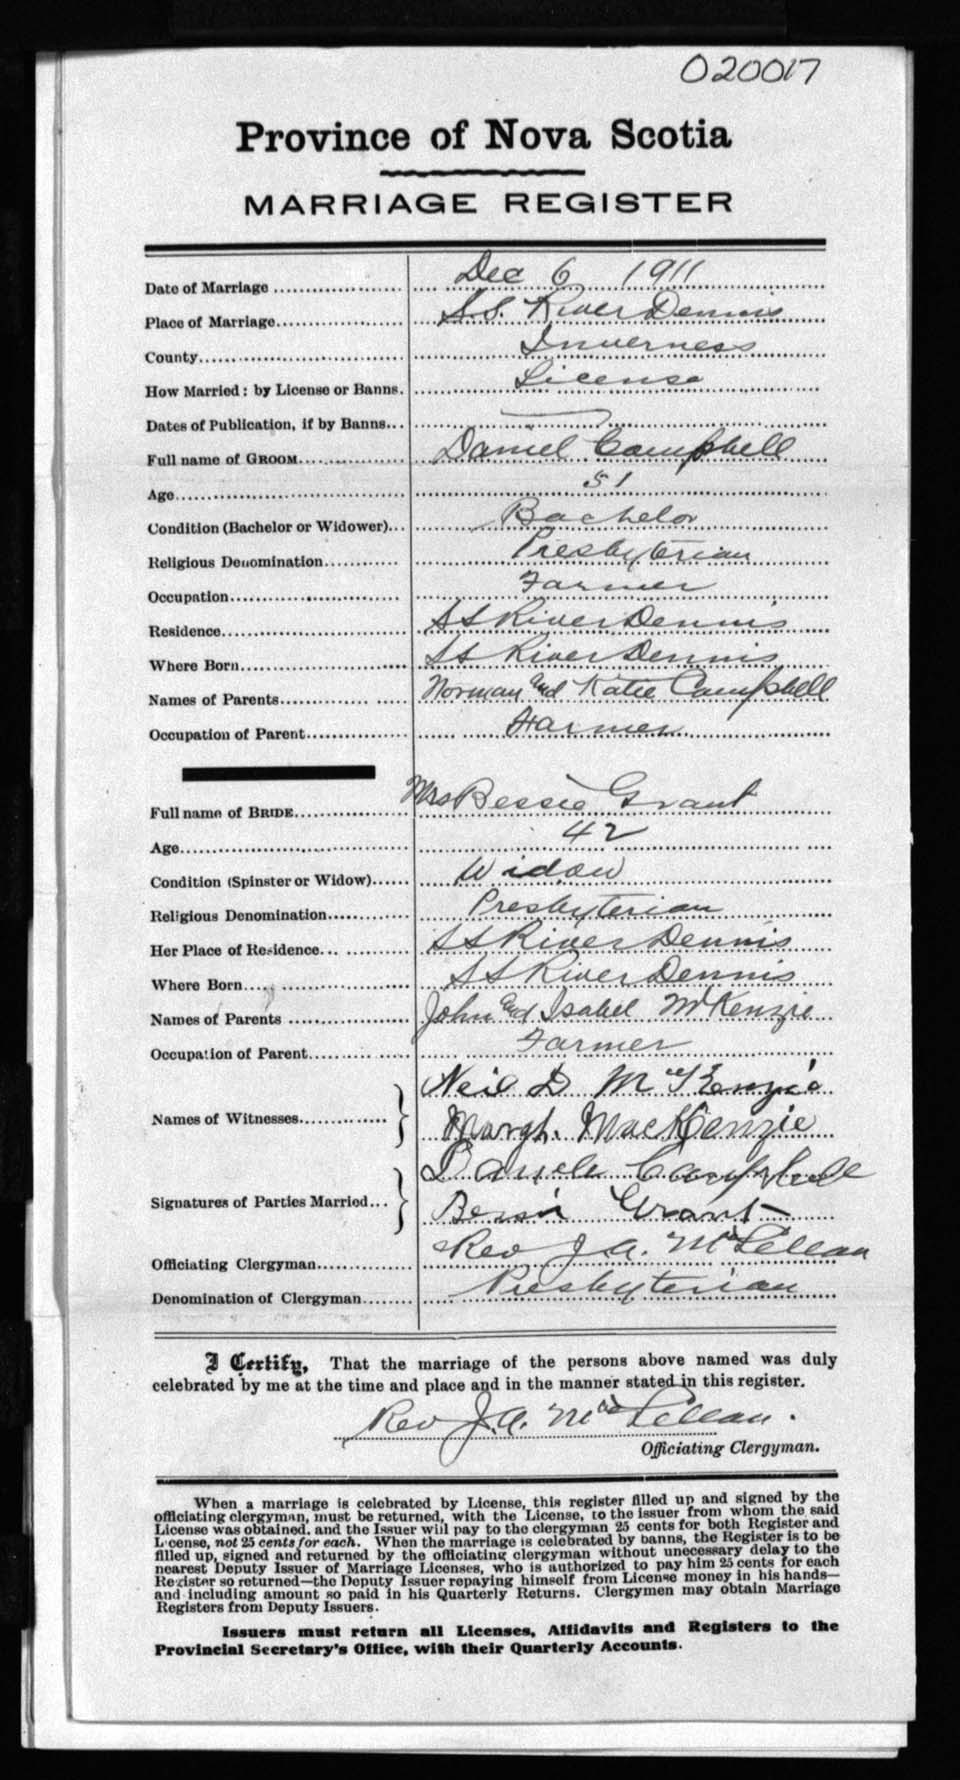 020017
Province of Nova Scotia
MARRIAGE REGISTER
Date of Marriage Dec 6 1911
Place of Marriage S.S. River Dennis
County Inverness
How Married: by License or Banns. License
Dates of Publication, if by Banns
Full name of GROOM Daniel Campbell
Age 51
Condition (Bachelor or Widower) Bachelor
Religious Denomination Presbyterian
Occupation Farmer
Residence SS River Dennis
Where Born SS River Dennis
Names of Parents Norman and Katie Campbell
Occupation of Parent Farmer
Full name of BRIDE Mrs Bessie Grant
Age 42
Condition (Spinster or Widow) Widow
Religious Denomination Presbyterian
Her Place of Residence SS River Dennis
Where Born SS River Dennis
Names of Parents John and Isabel McKenzie
Occupation of Parent Farmer
Names of Witnesses Neil D McKenzie
Margt. MacKenzie
Signatures of Parties Married Daniel Campbell
Bessie Grant
Officiating Clergyman Rev J A. McLellan
Denomination of Clergyman Presbyterian
I Certify, That the marriage of the persons above named was duly
celebrated by me at the time and place and in the manner stated in this register.
Rev J.A. McLellan.
Officiating Clergyman.
When a marriage is celebrated by License, this register filled up and signed by the
officiating clergyman, must be returned, with the License, to the issuer from whom the said
License was obtained, and the Issuer will pay to the clergyman 25 cents for both Register and
License, not 25 cents for each. When the marriage is celebrated by banns, the Register is to be
filled up, signed and returned by the officiating clergyman without unecessary delay to the
nearest Deputy Issuer of Marriage Licenses, who is authorized to pay him 25 cents for each
Register so returned—the Deputy Issuer repaying himself from License money in his hands—
and including amount so paid in his Quarterly Returns. Clergymen may obtain Marriage
Registers from Deputy Issuers.
Issuers must return all Licenses, Affidavits and Registers to the
Provincial Secretary's Office, with their Quarterly Accounts.